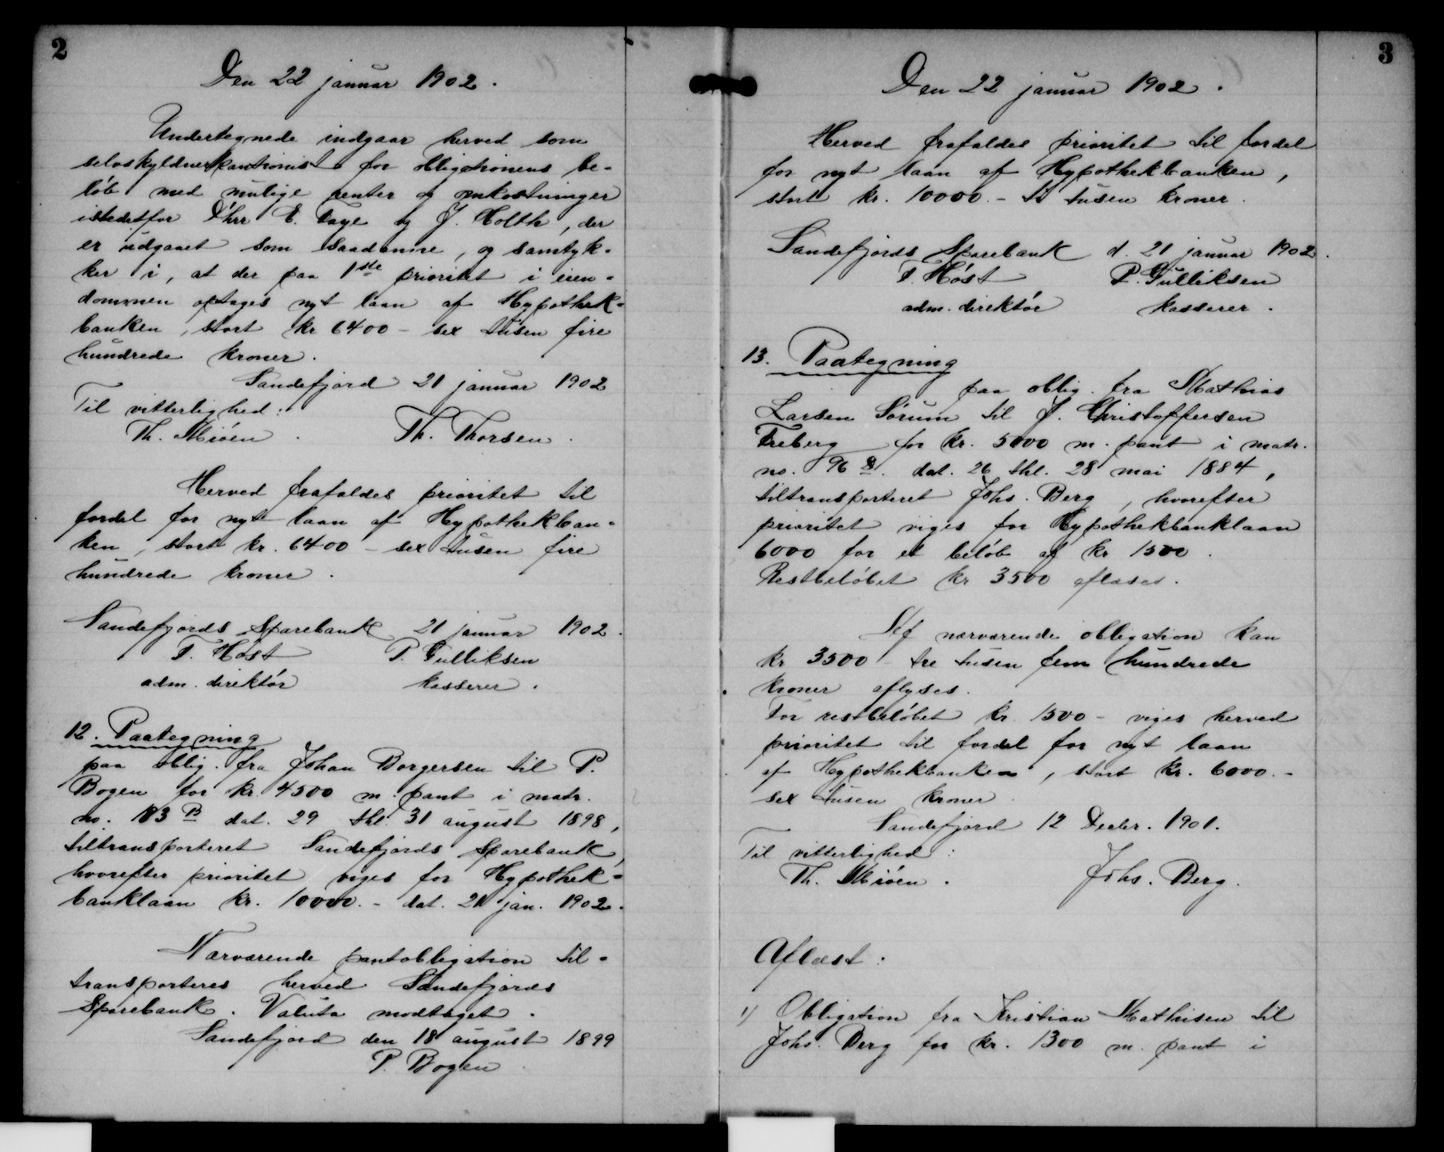 2
Den 22 januar 1902.
Undertegnede indgaar herved som
selvskyldnerkautionist for obligationens be-
løb med mulige renter og omkostninger
istedetfor D'hrr E. Taye og J. Holth, der
er udgaaet som saadanne, og samtyk-
ker i, at der paa 1ste prioritet i eien-
dommen optages nyt laan af Hypothek-
banken, stort kr 6400 - sex tusen fire
hundrede kroner.
Sandefjord 21 januar 1902
Til vitterlighed:
Th. Miøen. Th. Thorsen.
Herved frafaldes prioritet til
fordel for nyt laan af Hypothekban-
ken, stort kr. 6400 - sex tusen fire
hundrede kroner.
Sandefjords Sparebank 21 januar 1902.
T. Høst P. Gulliksen
adm. direktør kasserer.
12. Paategning
paa oblig. fra Johan Borgersen til P.
Bogen for kr. 4500 m. pant i matr.
no. 183 B dat. 29 thl. 31 august 1898,
tiltransporteret Sandefjords Sparebank,
hvorefter prioritet viges for Hypothek-
banklaan kr. 10000.- dat. 21 jan. 1902.
Nærværende pantobligation til-
transporteres herved Sandefjords
Sparebank. Valuta modtaget.
Sandefjord den 18 august 1899
P. Bogen
3
Den 22 januar 1902.
Herved frafaldes prioritet til fordel
for nyt laan af Hypothekbanken,
stort kr. 10000.- ti tusen kroner.
Sandefjords Sparebank d. 21 januar 1902.
T. Høst P. Gulliksen
adm. direktør kasserer.
13. Paategning
paa oblig. fra Mathias
Larsen Sørum til J. Christoffersen
Freberg for kr. 5000 m. pant i matr.
no. 96 dat. 26 thl. 28 mai 1884,
tiltransporteret Johs. Berg, hvorefter
prioritet viges for Hypothekbanklaan
6000 for et beløb af kr 1500.
Restbeløbet kr 3500 aflæses.
Af nærværende obligation kan
kr 3500 - tre tusen fem hundrede
kroner aflyses.
For restbeløbet kr. 1500 - viges herved
prioritet til fordel for nyt laan
af Hypothekbanken, stort kr. 6000.-
sex tusen kroner.
Sandefjord 12 Decbr. 1901.
Til vitterlighed:
Th. Miøen. Johs. Berg.
Aflæst:
1) Obligation fra Kristian Mathisen til
Johs. Berg for kr. 1300 m. pant i